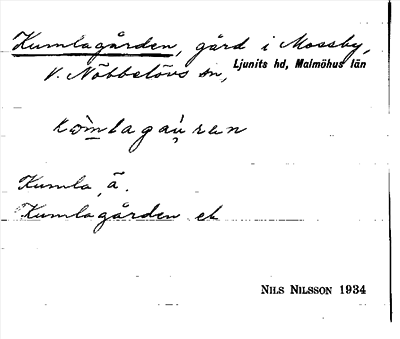 Kumlagården, gård i Mossby,
V. Nöbbelövs sn, Ljunits hd, Malmöhus län
Kumla, ä.
Kumlagården, ek
NILS NILSSON 1934